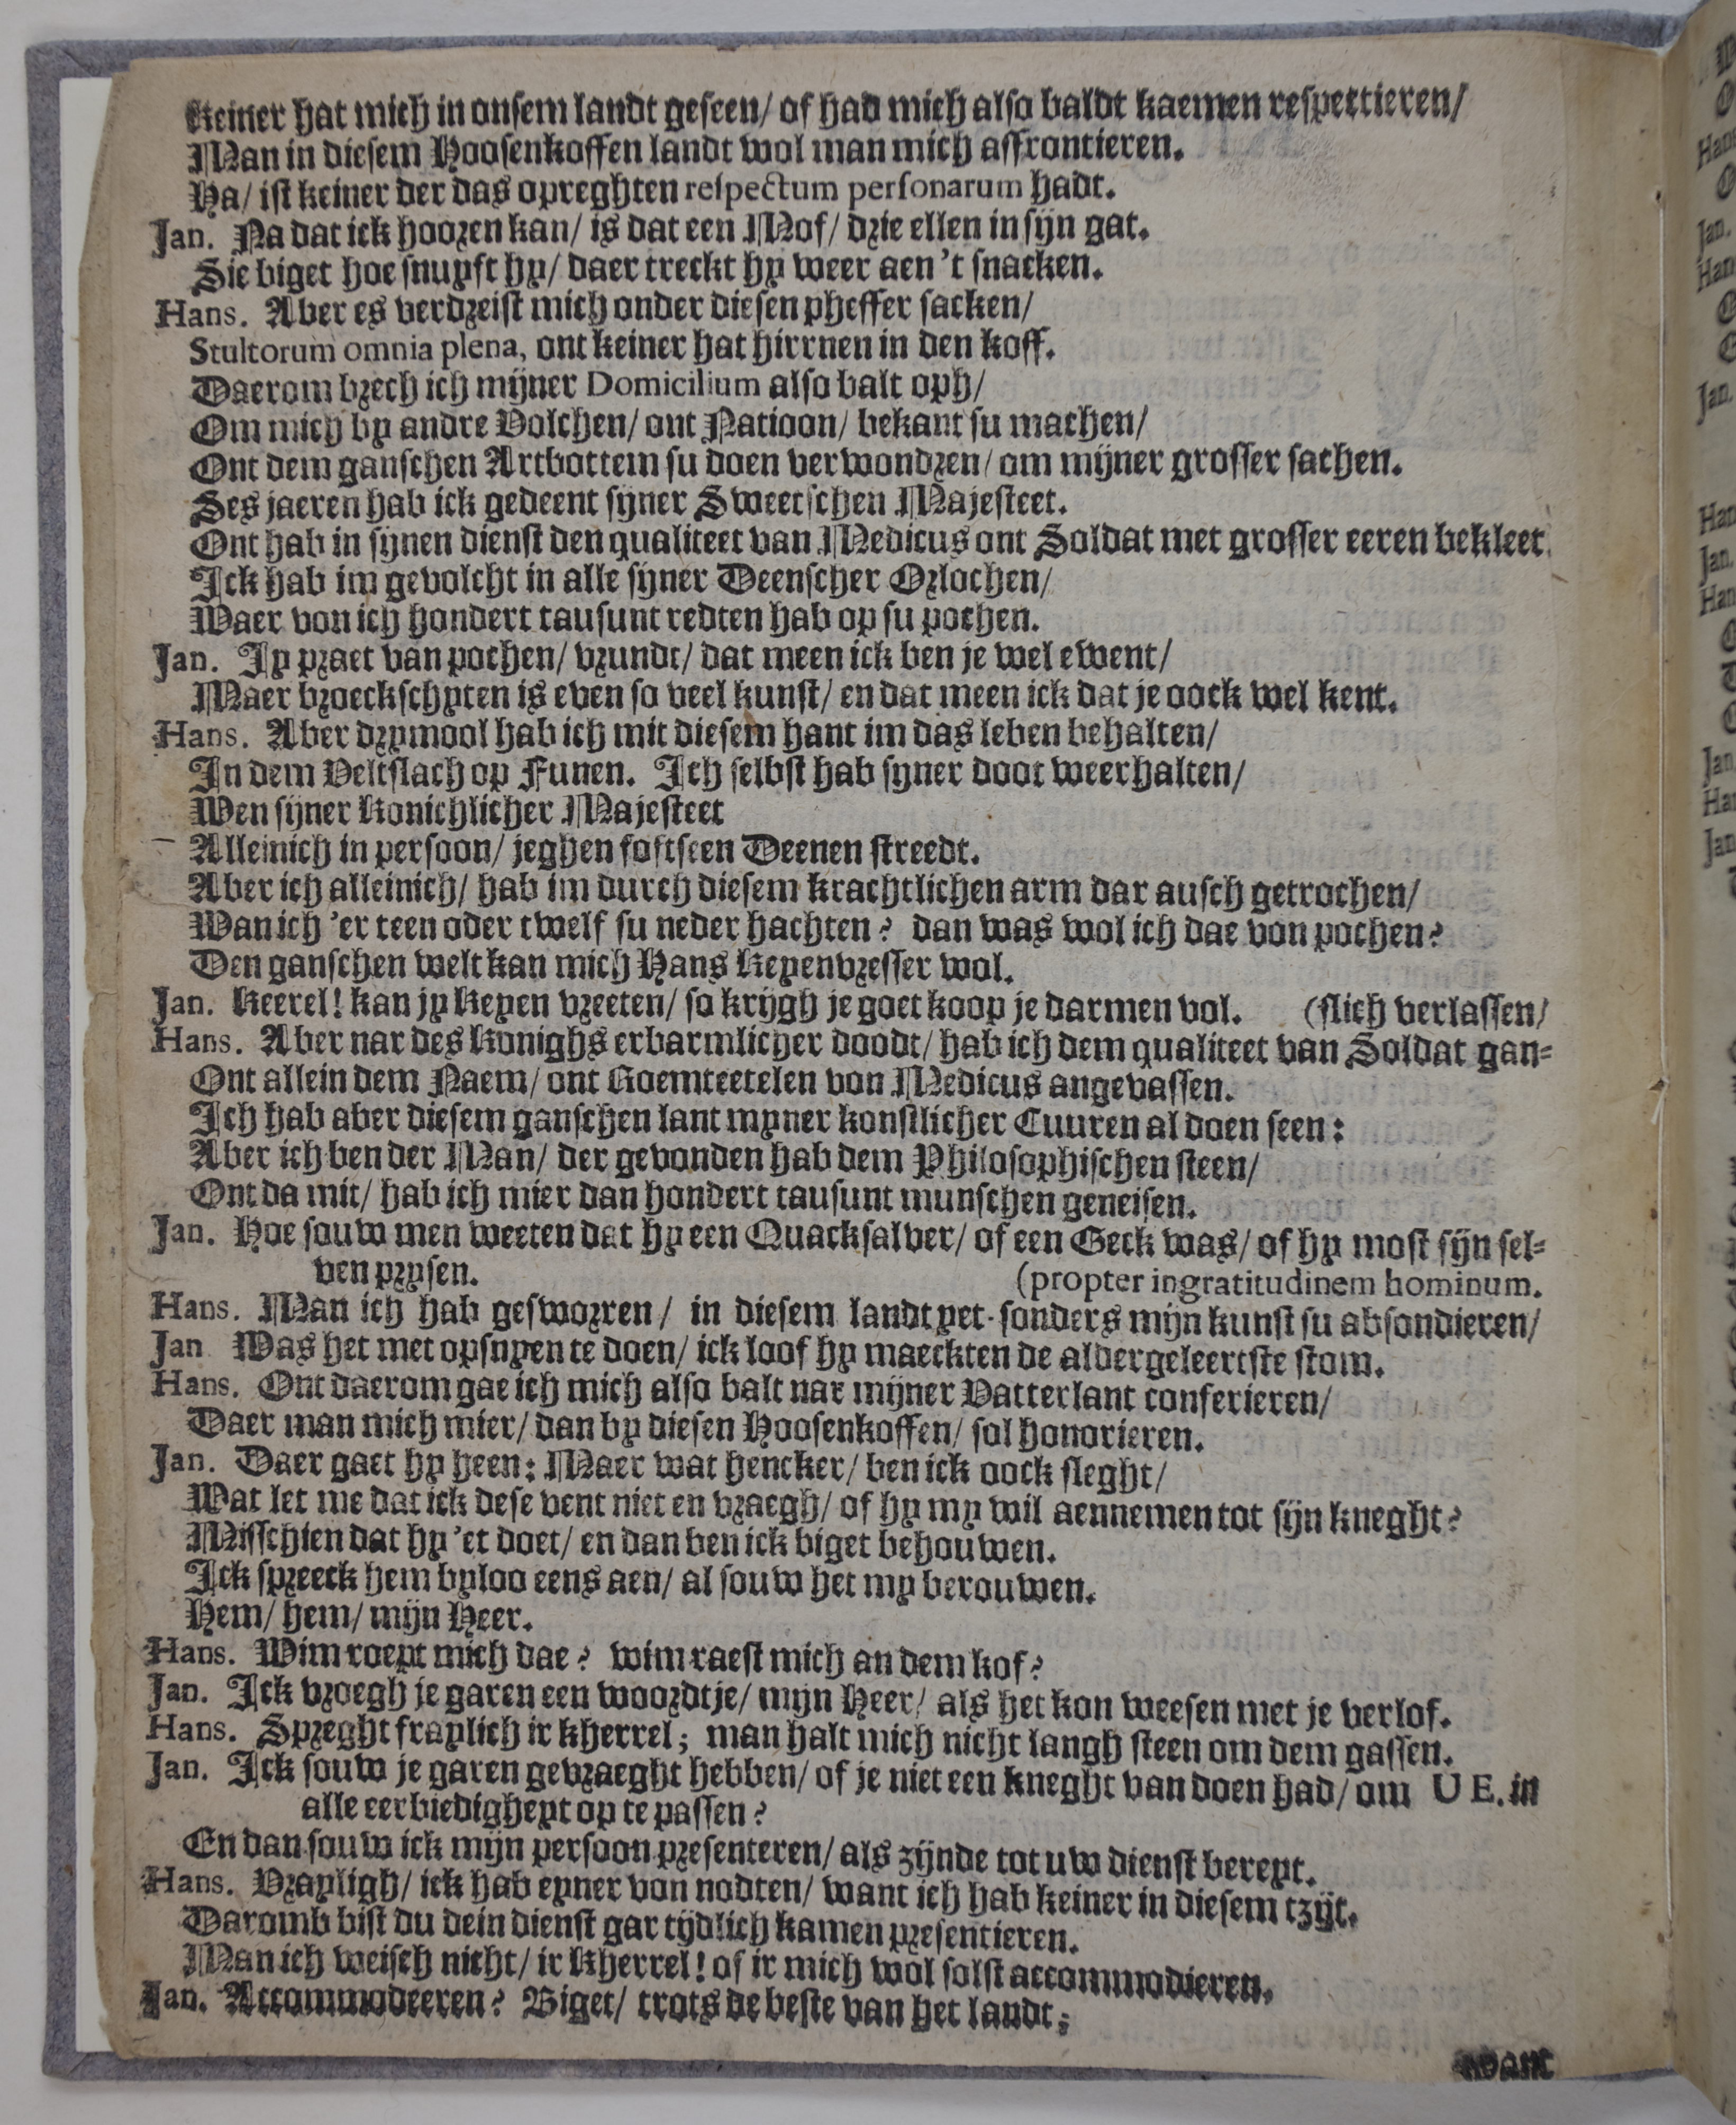 Keiner hat mich in onsem landt geseen/ of had mich also baldt kaemen respectieren/
Man in diesem Hoosenkoffen landt wol man mich affrontieren.
Ha/ ist keiner der das opreghten respectum personarum hadt.
Jan. Na dat ick hooren kan/ is dat een Mof/ drie ellen in sijn gat.
Sie biget hoe snuyft hy/ daer treckt hy weer aen 't snacken.
Hans. Aber es verdreist mich onder diesen pheffer sacken/
Stultorum omnia plena, ont keiner hat hirrnen in den koff.
Daerom brech ich mijner Domicilium also balt oph/
Om mich by andre Volchen/ ont Natioon/ bekant su machen/
Ont dem ganschen Artbottem su doen verwondren/ om mijner grosser sachen.
Ses jaeren hab ick gedeent sijner Sweetschen Majesteet.
Ont hab in sijnen dienst den qualiteet van Medicus ont Soldat met grosser eeren bekleet.
Ick hab im gevolcht in alle sijner Deenscher Orlochen/
Waer von ich hondert tausunt redten hab op su pochen.
Jan. Jy praet van pochen/ vrundt/ dat meen ick ben je wel ewent/
Maer broeckschyten is even so veel kunst/ en dat meen ick dat je oock wel kent.
Hans. Aber drymool hab ich mit diesem hant im das leben behalten/
In dem Veltslach op Funen. Ich selbst hab syner doot weerhalten/
Wen sijner Konichlicher Majesteet
Alleinich in persoon/ jeghen foftseen Deenen streedt.
Aber ich alleinich/ hab im durch diesem krachtlichen arm dar ausch getrochen/
Wan ich 'er teen oder twelf su neder hachten? dan was wol ich dae von pochen?
Den ganschen welt kan mich Hans Keyenvresser wol.
Jan. Keerel! kan jy Keyen vreeten/ so krijgh je goet koop je darmen vol. (slich verlassen/
Hans. Aber nar des Konighs erbarmlicher doodt/ hab ich dem qualiteet van Soldat gan-
Ont allein dem Naem/ ont Roemteetelen von Medicus angevassen.
Ich hab aber diesem ganschen lant myner konstlicher Cuuren al doen seen:
Aber ich ben der Man/ der gevonden hab dem Philosophischen steen/
Ont da mit/ hab ich mier dan hondert tausunt munschen geneisen.
Jan. Hoe souw men weeten dat hy een Quacksalver/ of een Geck was/ of hy most sijn sel-
ven prysen. (propter ingratitudinem hominum.
Hans. Man ich hab gesworren/ in diesem landt yet sonders mijn kunst su absondieren/
Jan Was het met opsnyen te doen/ ick loof hy maeckten de aldergeleertste stom.
Hans. Ont daerom gae ich mich also balt nar mijner Vatterlant conferieren/
Daer man mich mier/ dan by diesen Hoosenkoffen/ sol honorieren.
Jan. Daer gaet hy heen: Maer wat hencker/ ben ick oock sleght/
Wat let me dat ick dese vent niet en vraegh/ of hy my wil aennemen tot sijn kneght?
Misschien dat hy 'et doet/ en dan ben ick biget behouwen.
Ick spreeck hem byloo eens aen/ al souw het my berouwen.
Hem/ hem/ mijn Heer.
Hans. Wim roept mich dae? wim raest mich an dem kof?
Jan. Ick vroegh je garen een woordtje/ mijn Heer/ als het kon weesen met je verlof.
Hans. Spreght fraylich ir kherrel; man halt mich nicht langh steen om dem gassen.
Jan. Ick souw je garen gevraeght hebben/ of je niet een kneght van doen had/ om U E. in
alle eerbiedigheyt op te passen?
En dan souw ick mijn persoon presenteren/ als zijnde tot uw dienst bereyt.
Hans. Vrayligh/ ick hab eyner von nodten/ want ich hab keiner in diesem tzijt.
Daromb bist du dein dienst gar tijdlich kamen presentieren.
Man ich weisch nicht/ ir Kherrel! of ir mich wol solst accommodieren.
Jan. Accommodeeren? Biget/ trots de beste van het landt;